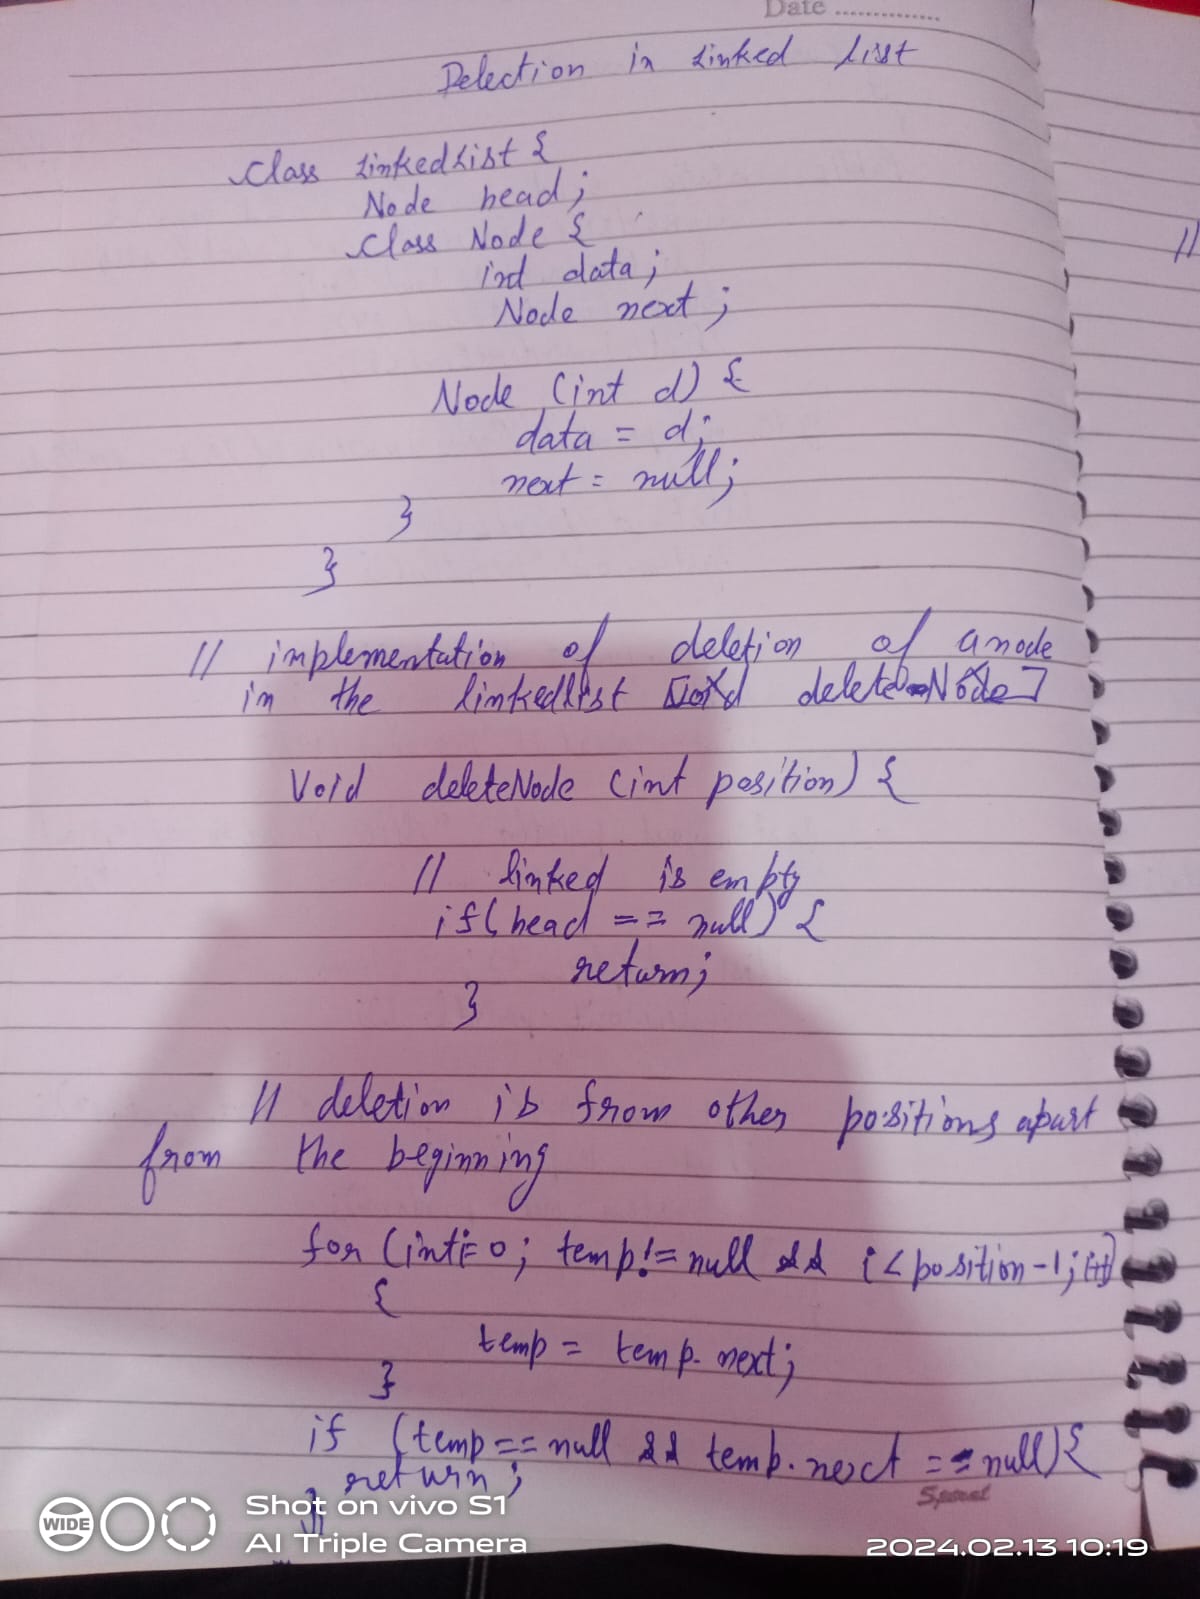 Date ..............
Delection in Linked List
Class LinkedList {
Node head;
Class Node {
int data;
Node next;
Node (int d) {
data = d;
next = null;
}
}
// implementation of deletion of a node
in the linkedlist [void deleteNode]
Void deleteNode (int position) {
// linked is empty
if (head == null) {
return;
}
// deletion is from other positions apart
from the beginning
for (int i=0; temp!=null && i<position-1; i++)
{
temp = temp.next;
}
if (temp == null && temp.next == null) {
return;
}
Shot on vivo S1
WIDE
AI Triple Camera
2024.02.13 10:19
//